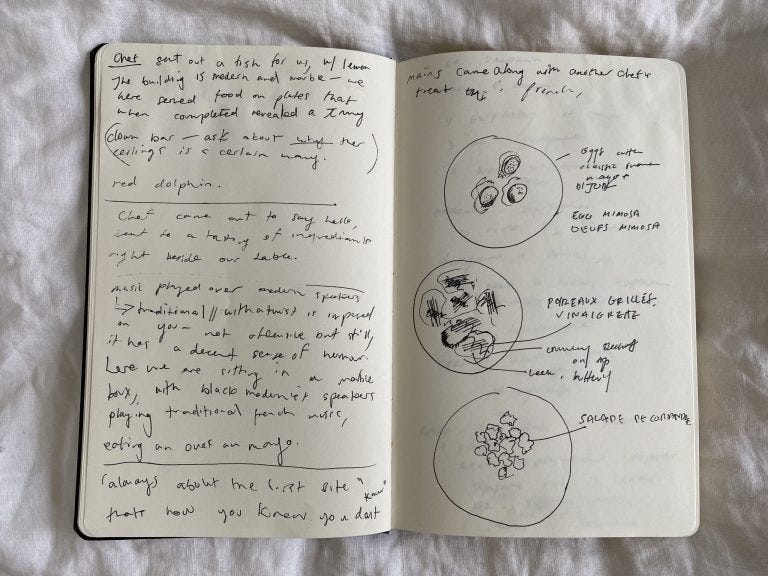 Chef sent out a fish for us, w/ lemon
The building is modern and marble – we
were served food on plates that
when completed revealed a
bar – ask about why
ceilings is a certain
red dolphin.
Chef came out to say hello,
sent to a tasting of ingredients
right beside our table.
music played over modern speakers
traditional // with a twist is imposed
on you – not offensive but still,
it has a decent sense of humor.
here we are sitting in a marble
box, with black modernist speakers
playing traditional french music,
eating an mayo.
"always about the first
thats how you
mains came along with another chef's
treat french,
Eggs with
classic
mayo +
DIJON
EGG MIMOSA
OEUFS MIMOSA
POIREAUX GRILLÉS,
VINAIGRETE
crunchy
on top
Leek, buttery
SALADE DE